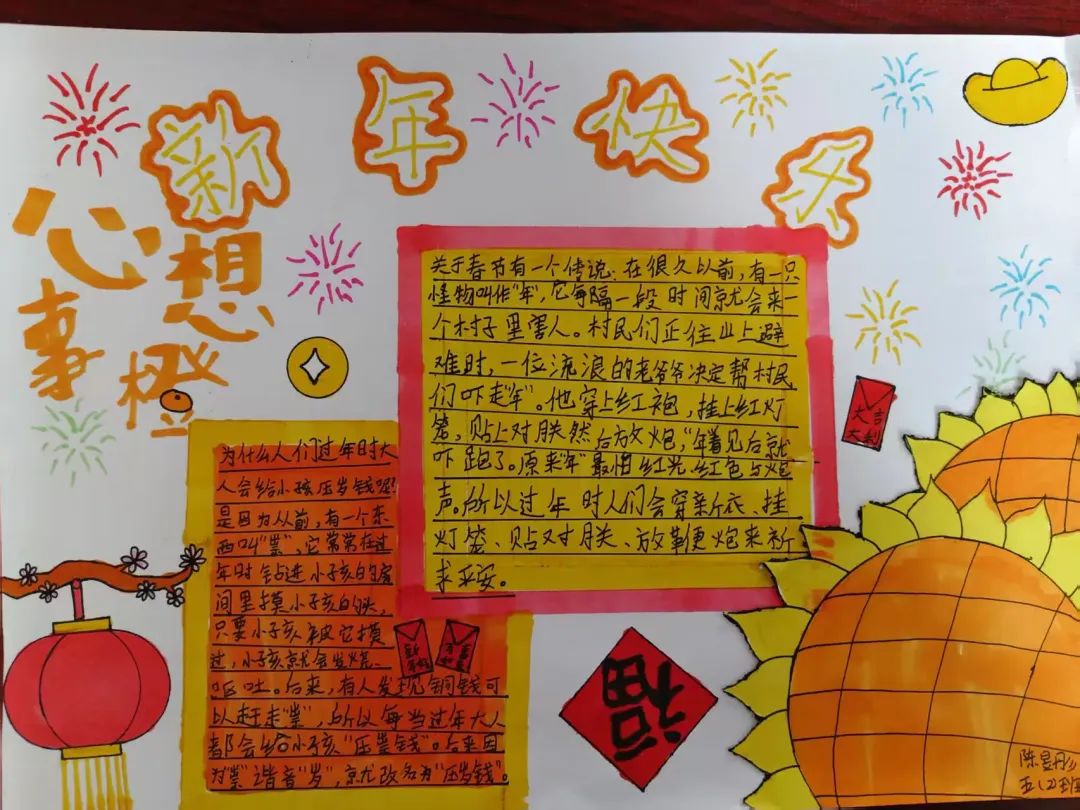 新年快乐
心想
事橙
关于春节有一个传说.在很久以前,有一只
怪物叫作"年",它每隔一段时间就会来一
个村子里害人。村民们正往山上避
难时,一位流浪的老爷爷决定帮村民
们吓走"年"。他穿上红袍,挂上红灯
笼,贴上对联然后放炮,"年着见后就
吓跑了。原来"年"最怕红光、红色与炮
声。所以过年时人们会穿新衣、挂
灯笼、贴对联、放鞭炮来祈
求平安。
大吉
大利
为什么人们过年时大
人会给小孩压岁钱呢?
是因为从前,有一个东
西叫"祟",它常常在过
年时钻进小孩的房
间里摸小孩的头,
只要小孩被它摸
过,小孩就会发烧、
呕吐。后来,有人发现铜钱可
以赶走"祟",所以每当过年大人
都会给小孩"压祟钱"。后来因
为"祟"谐音"岁",就改名为"压岁钱"。
福
陈昱彤
五(2)班